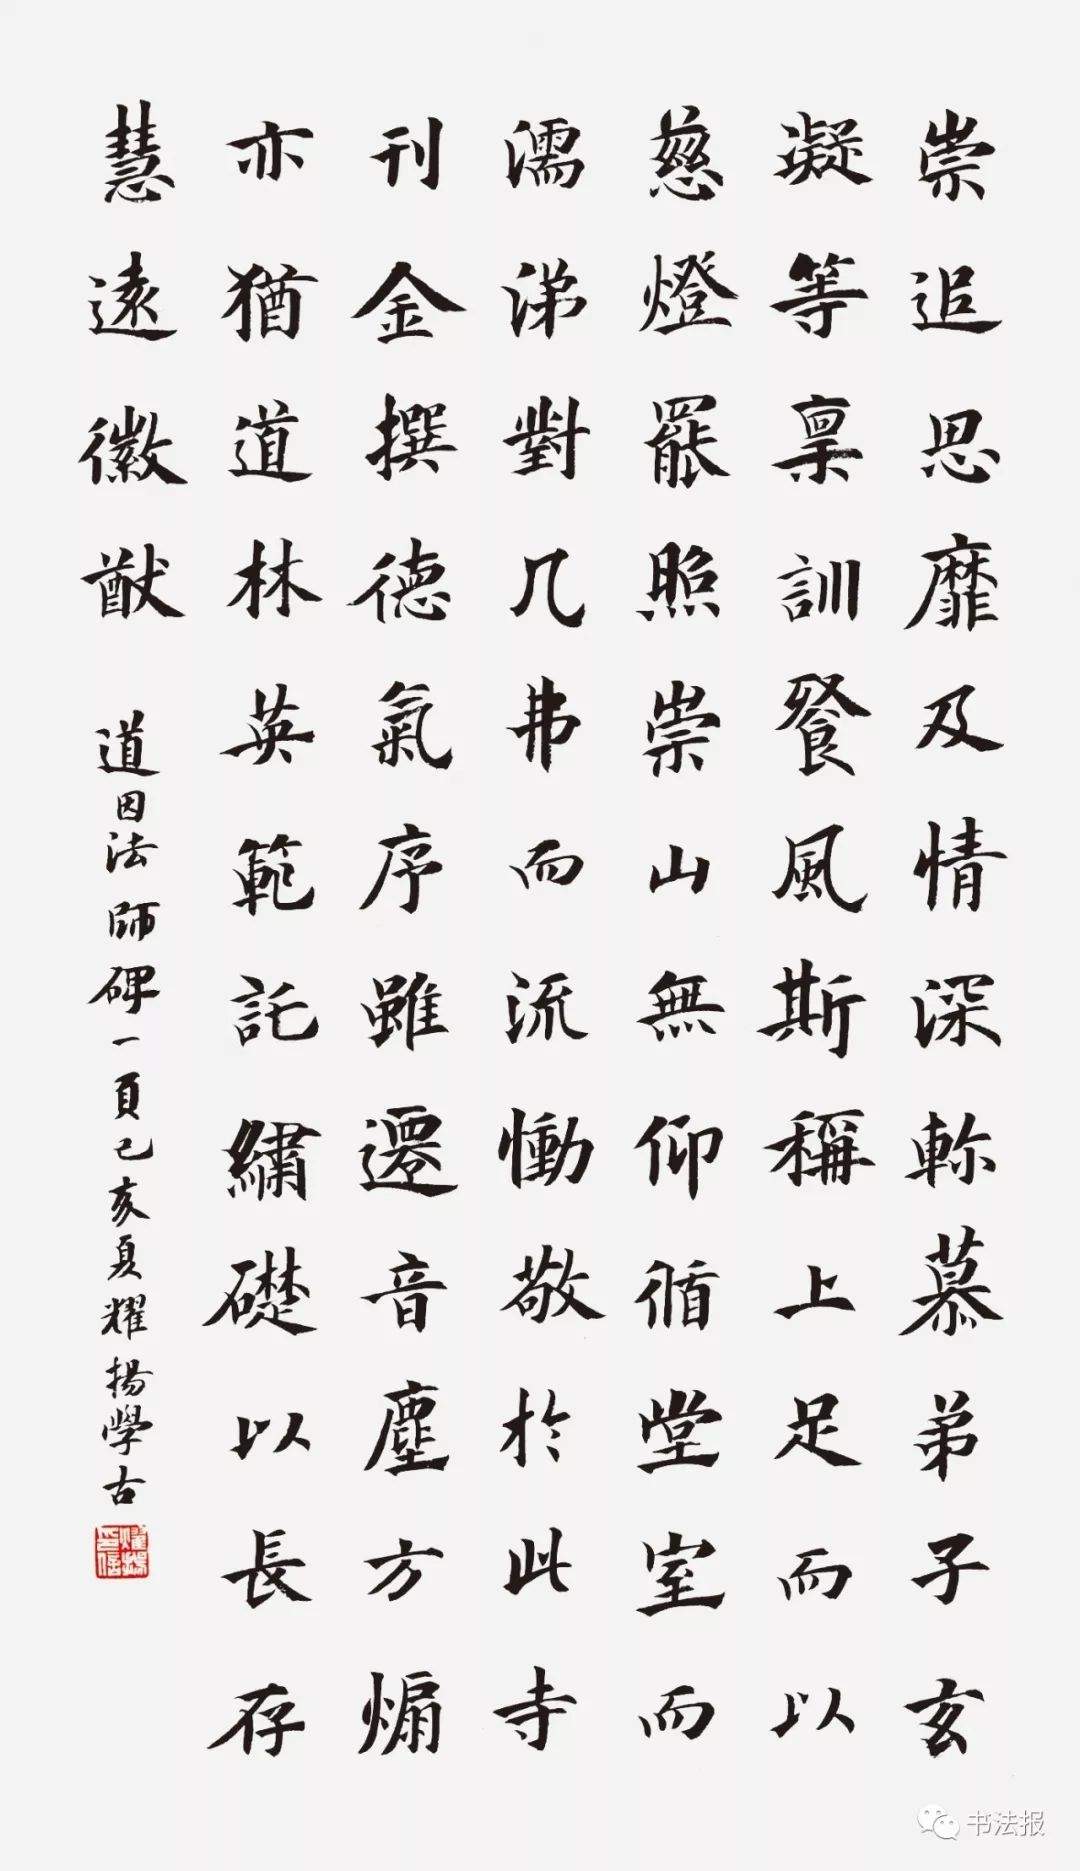 崇追思靡及情深軫慕弟子玄
凝等稟訓飡風斯稱上足而以
慈燈罷照崇山無仰循堂室而
濡涕對几弗而流慟敬於此寺
刊金撰德氣序雖遷音塵方煽
亦猶道林英範託繡礎以長存
慧遠徽猷
道因法師碑一頁己亥夏耀揚學古
书法报